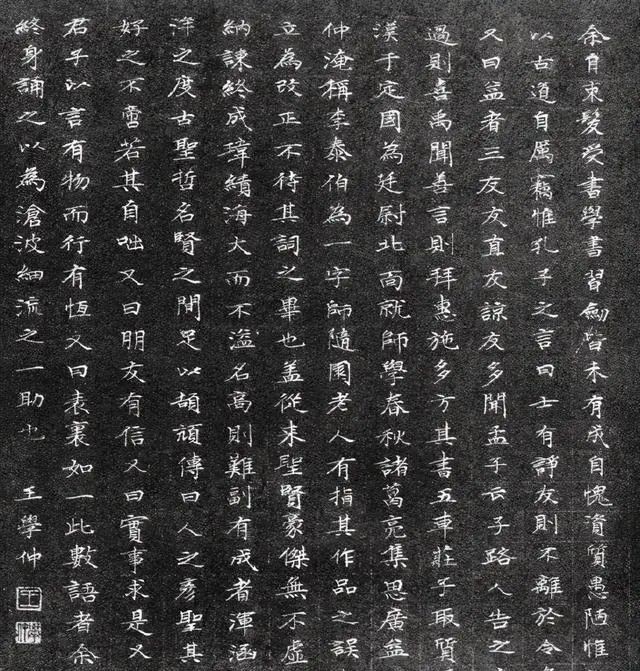 余自束髮受書學書習劒皆未有成自愧資質愚陋惟
以古道自厲竊惟孔子之言曰士有諍友則不離於令
又曰益者三友友直友諒友多聞孟子云子路人告之
過則喜禹聞善言則拜惠施多方其書五車莊子取質
漢于定國為廷尉北面就師學春秋諸葛亮集思廣益
仲淹稱李泰伯為一字師隨園老人有指其作品之誤
立為改正不待其詞之畢也盖從来聖賢豪傑無不虛
納諫終成瑋績海大而不溢名高則難副有成者渾涵
洋之度古聖哲名賢之間足以頡頏傳曰人之彥聖其
好之不啻若其自咄又曰朋友有信又曰實事求是又
君子以言有物而行有恆又曰表裏如一此數語者余
終身誦之以為滄波細流之一助也 王學仲